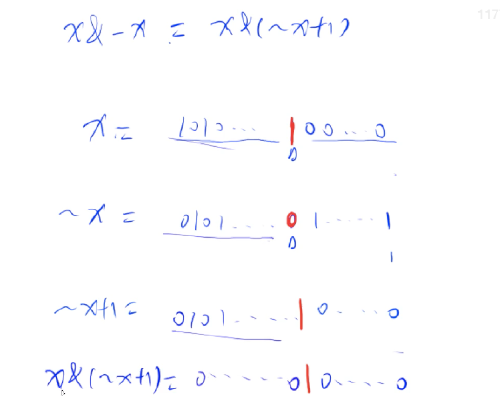 117
x&-x = x&(~x+1)
x = 1010... 1 00...0
0
~x = 0101.... 0 1.....1
0 1
~x+1 = 0101..... 1 0.....0
x&(~x+1) = 0......0 1 0.....0